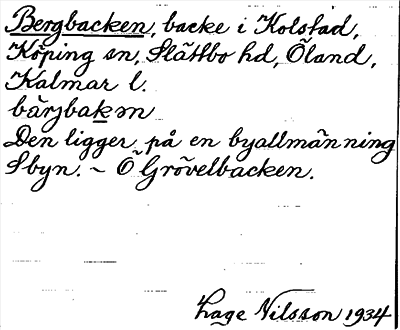 Bergbacken, backe i Kolstad,
Köping sn, Slättbo hd, Öland,
Kalmar l.
bärjbakən
Den ligger på en byallmänning
S byn. ~ Ö Grövelbacken.
Hage Nilsson 1934